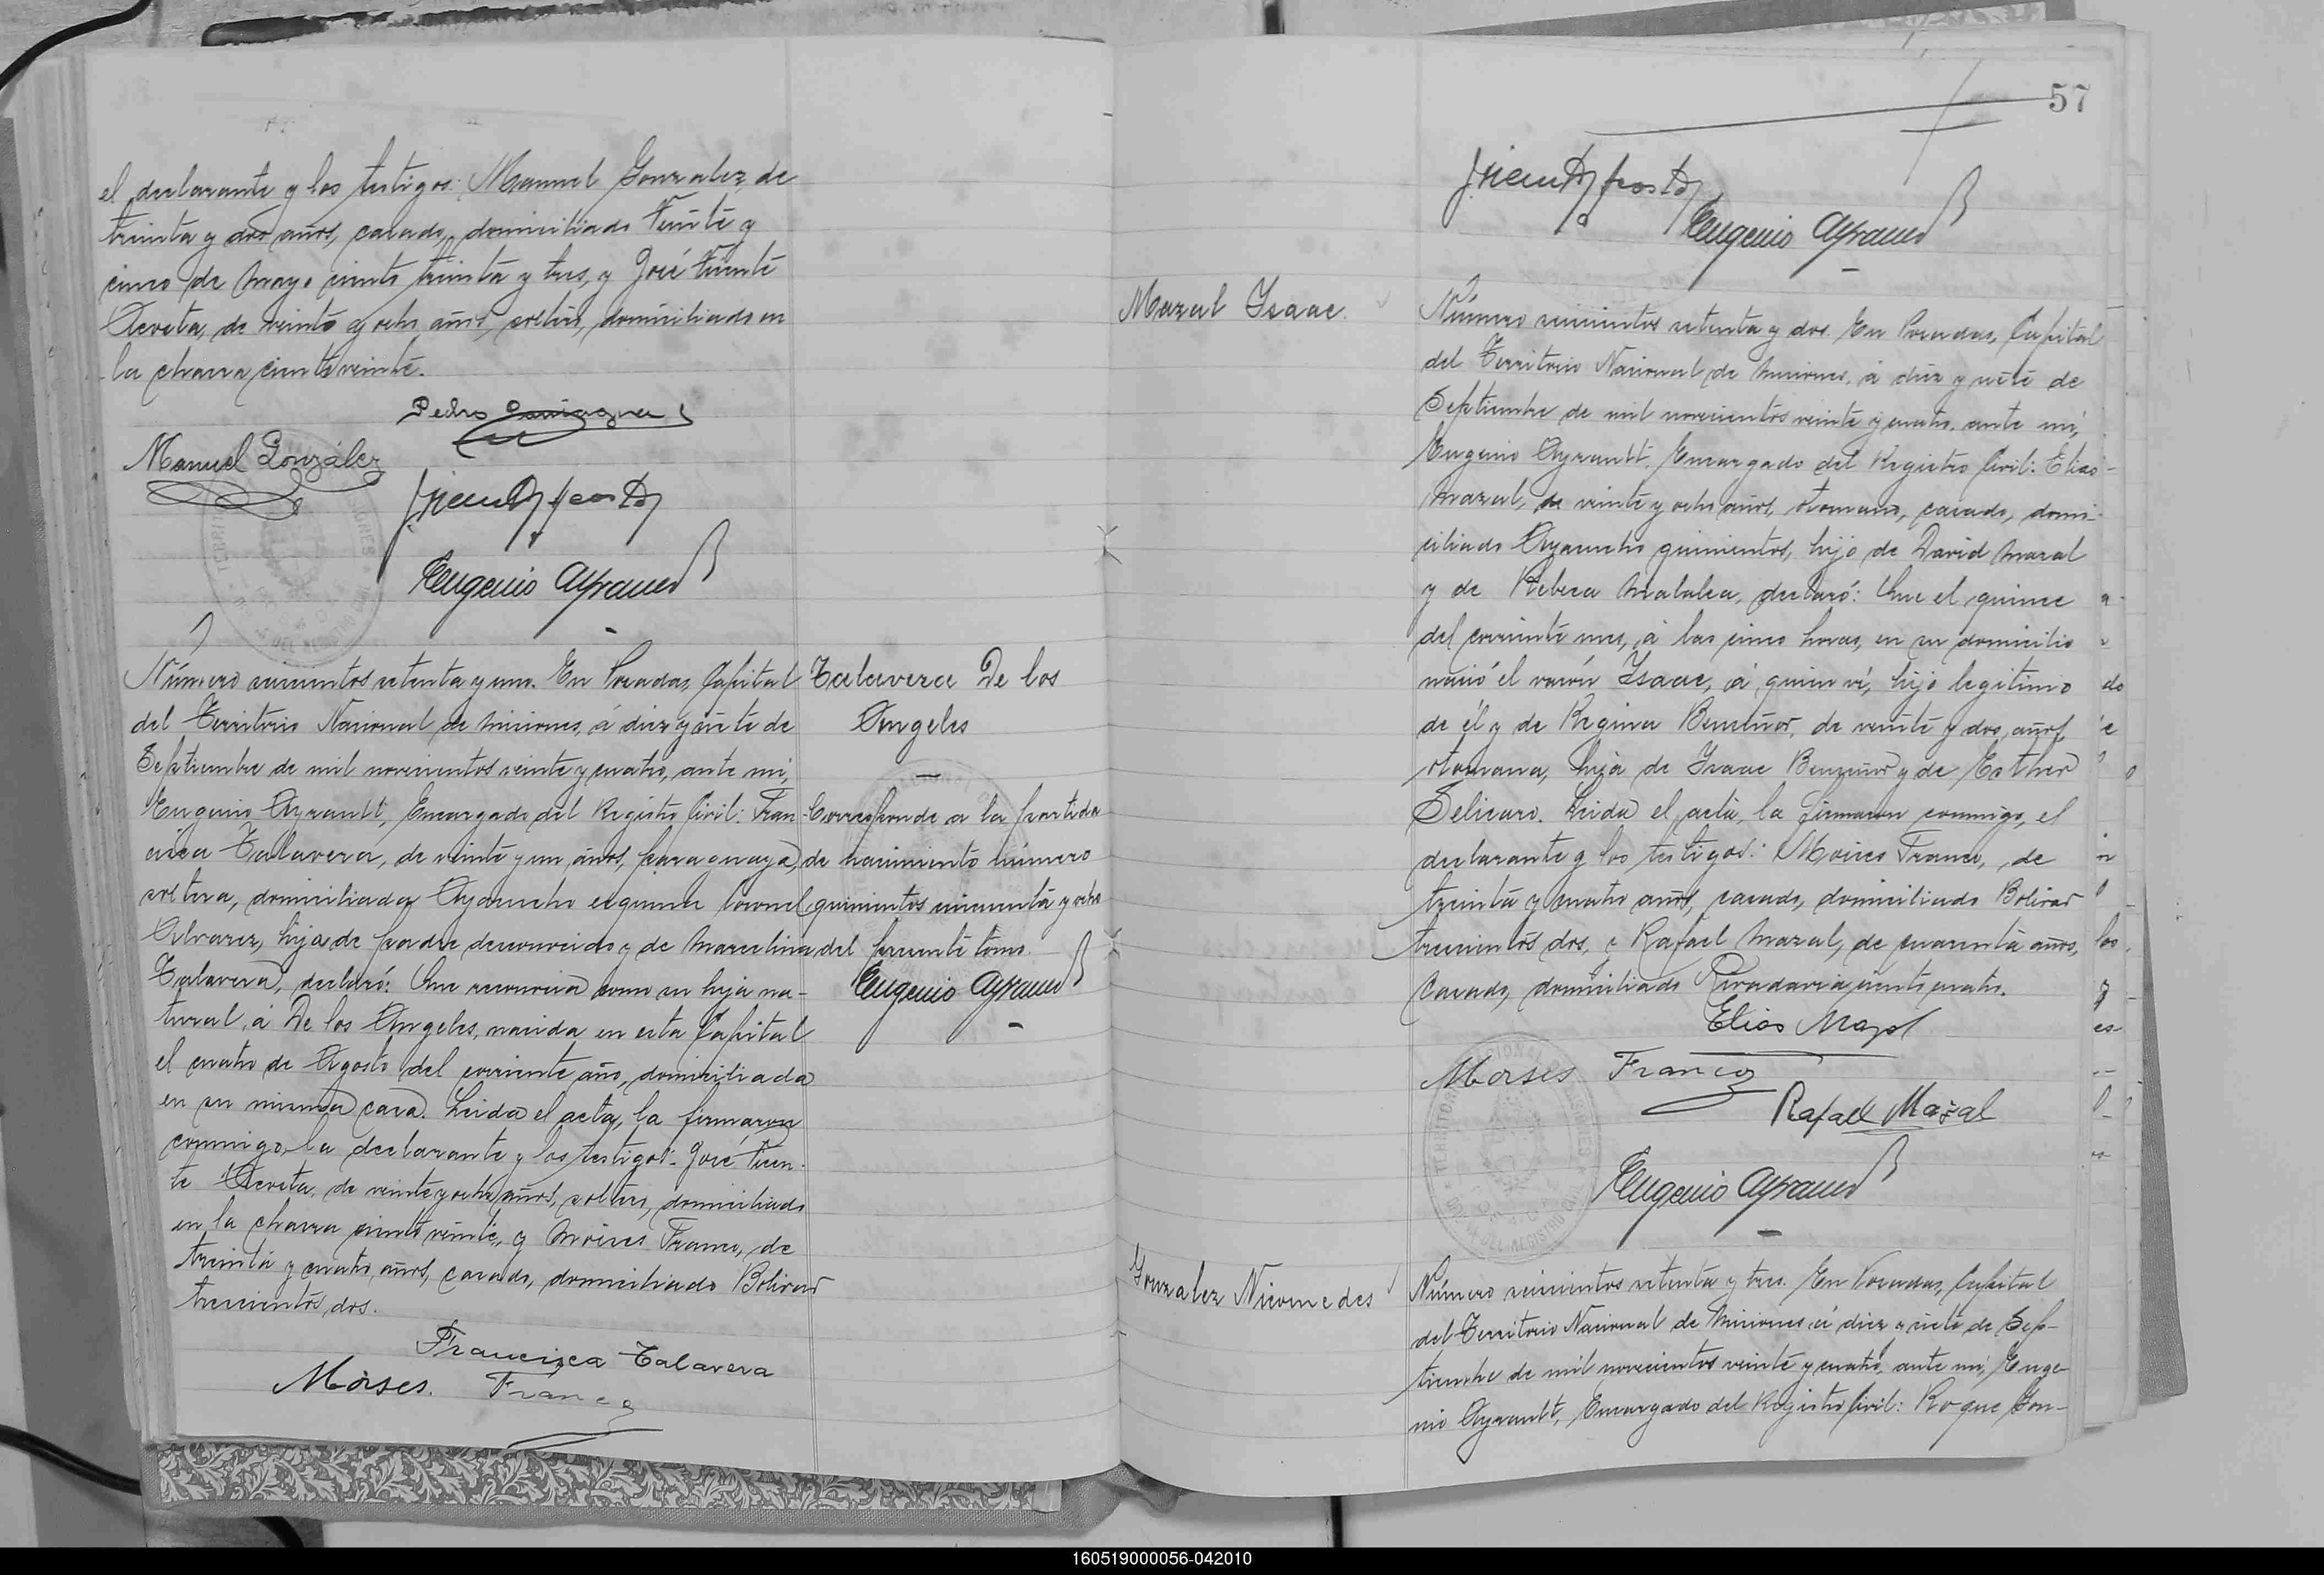 el declarante y los testigos: Manuel Gonzalez, de
treinta y dos años, casado, domiciliado Veinte y
cinco de Mayo ciento treinta y tres, y José Vicente
Acosta, de veinte y ocho años, soltero, domiciliado en
la chacra ciento veinte.
Pedro
Manuel González
J. Vicente Acosta
Eugenio Ayrault
Número seiscientos setenta y uno. En Posadas, Capital
del Territorio Nacional de Misiones, á diez y siete de
Septiembre de mil novecientos veinte y cuatro, ante mí,
Eugenio Ayrault, Encargado del Registro Civil: Fran-
cisca Talavera, de veinte y un años, paraguaya,
soltera, domiciliada Ayacucho esquina Coronel
Alvarez, hija de padre desconocido y de Marcelina
Talavera, declaró: Que reconocia como su hija na-
tural, á De los Angeles, nacida en esta Capital
el cuatro de Agosto del corriente año, domiciliada
en su misma casa. Leida el acta, la firmaron
conmigo, la declarante y los testigos: José Vicen-
te Acosta, de veinte y ocho años, soltero, domiciliado
en la chacra ciento veinte, y Moises Franco, de
treinta y cuatro años, casado, domiciliado Bolivar
trescientos dos.
Francisca Talavera
Moises Franco
Talavera De los
Angeles
Corresponde a la partida
de nacimiento número
quinientos cincuenta y ocho
del presente tomo.
Eugenio Ayrault
57
J. Vicente Acosta
Eugenio Ayrault
Mazal Isaac.
Número seiscientos setenta y dos. En Posadas, Capital
del Territorio Nacional de Misiones, á diez y siete de
Septiembre de mil novecientos veinte y cuatro, ante mí,
Eugenio Ayrault, Encargado del Registro Civil: Elias
Mazal, de veinte y ocho años, otomano, casado, domi-
ciliado Ayacucho quinientos, hijo de David Mazal
y de Rebeca, declaró: Que el quince
del corriente mes, á las cinco horas, en su domicilio
nació el varón Isaac, á quien ví, hijo legitimo
de él y de Regina Benseñor, de veinte y dos años,
otomana, hija de Isaac Benseñor y de Esther
Selicaro. Leida el acta, la firmaron conmigo, el
declarante y los testigos: Moises Franco, de
treinta y cuatro años, casado, domiciliado Bolivar
trescientos dos, y Rafael Mazal, de cuarenta años,
casado, domiciliado Rivadavia ciento cuatro.
Elias Mazal
Moises Franco
Rafael Mazal
Eugenio Ayrault
Gonzalez Nicomedes
Número seiscientos setenta y tres. En Posadas, Capital
del Territorio Nacional de Misiones, á diez y siete de Sep-
tiembre de mil novecientos veinte y cuatro, ante mí, Euge-
nio Ayrault, Encargado del Registro Civil: Roque Gon-
160519000056-042010